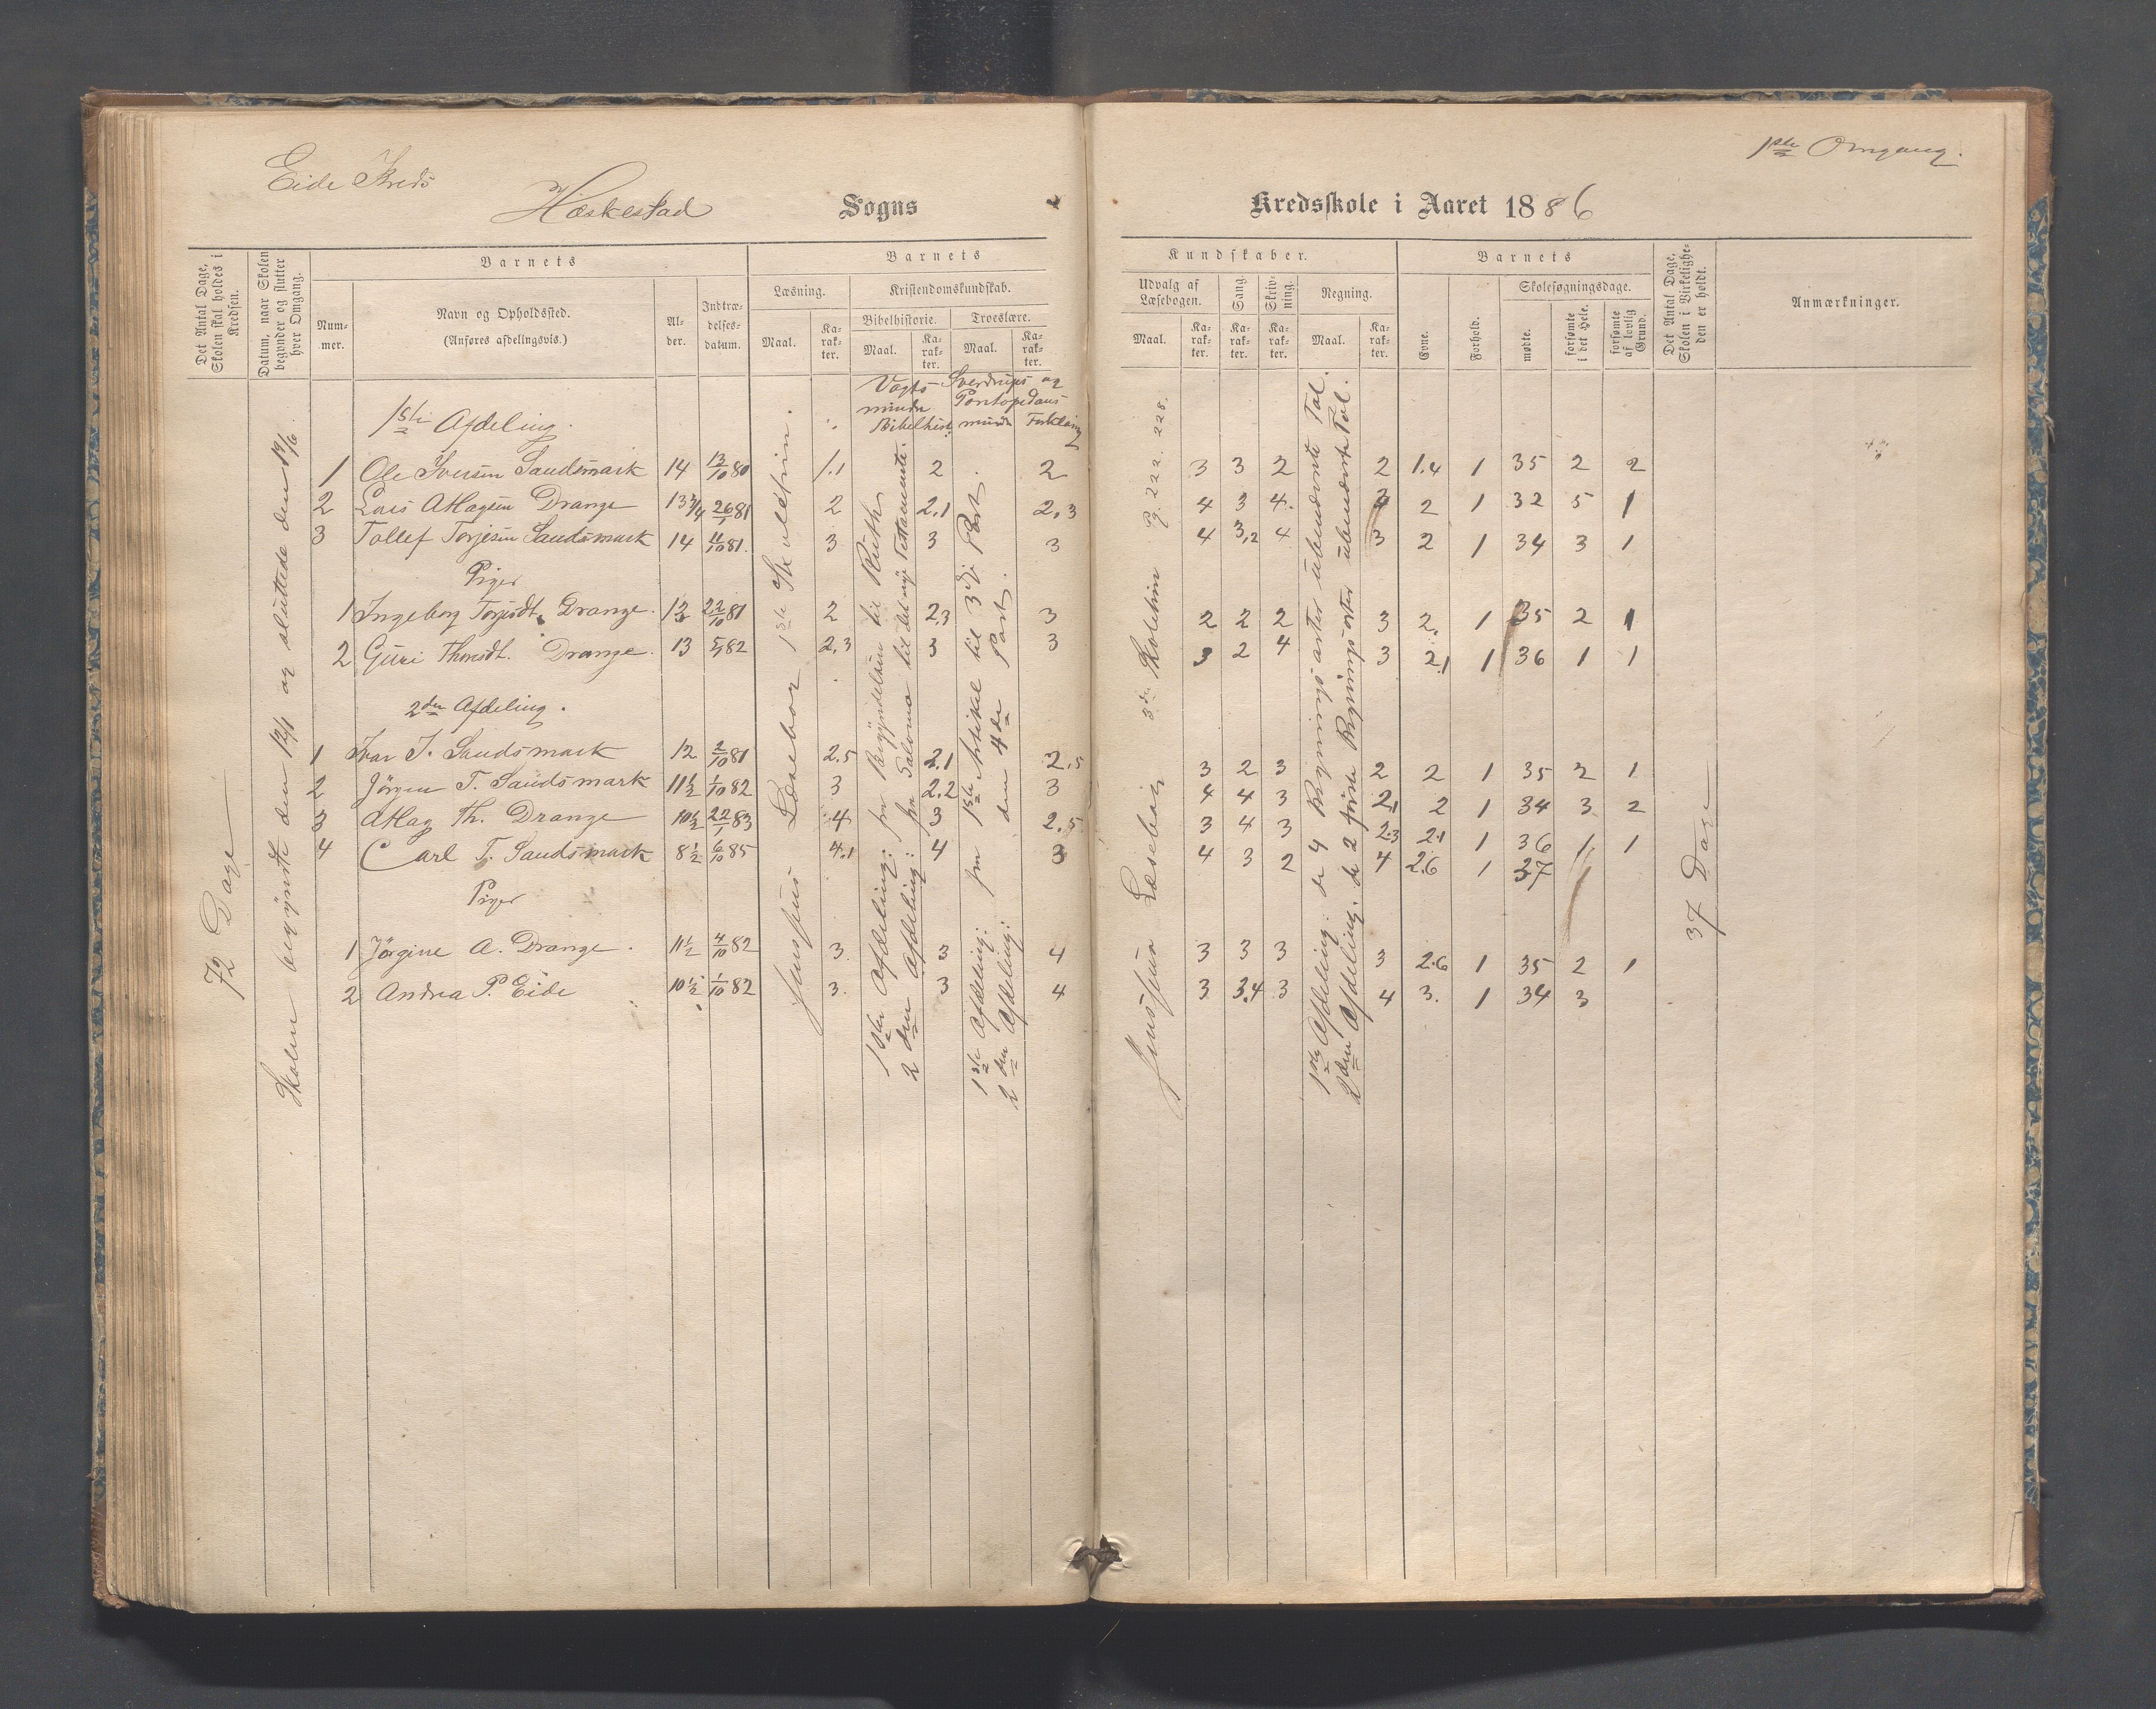 Eide Kreds
1ste Omgang.
Hæskestad Sogns
Kredsskole i Aaret 1886
Det Antal Dage, Skolen skal holdes i Kredsen.
Datum, naar Skolen begynder og slutter hver Omgang.
Barnets
Num-mer.
Navn og Opholdssted.
(Anføres afdelingsvis.)
Al-der.
Indtræ-delses-datum.
Barnets
Læsning.
Maal.
Ka-rak-ter.
Kristendomskundskab.
Bibelhistorie.
Maal.
Ka-rak-ter.
Troeslære.
Maal.
Ka-rak-ter.
Kundskaber.
Udvalg af Læsebogen.
Maal.
Ka-rak-ter.
Sang
Ka-rak-ter.
Skriv-ning.
Ka-rak-ter.
Regning.
Maal.
Ka-rak-ter.
Barnets
Evne.
Forhold.
Skolesøgningsdage.
mødte.
forsømte i det Hele.
forsømte af lovlig Grund.
Det Antal Dage, Skolen i Virkelighe-den er holdt.
Anmærkninger.
72 Dage
Skolen begyndte den 12/1 og sluttede den 19/6.
Vogts mindre Bibelhist:
Sverdrups og Pontopedans mindre Forklaring
1ste Afdeling.
1 Ole Iversen Saudsmark 14 13/10 80 1.1 2 2 3 3 2 2 1.4 1 35 2 2
2 Lars Atlagsen Drange 13 3/4 26/1 81 2 2.1 2.3 4 3 4 2 1 32 5 1
3 Tollef Torjesen Saudsmark 14 11/10 81. 3 3 3 4 3,2 4 3 2 1 34 3 1
Piger
1 Ingeborg Torjesdt. Drange. 13 22/10 81 2 2,3 3 2 2 2 3 2. 1 35 2 1
2 Guri Thorsdt. Drange. 13 5/9 82 2.3 3 3 3 2 4 3 2,1 1 36 1 1
2den Afdeling.
1 Ivar I. Saudsmark 12 2/10 81 2.5 2.1 2.5 3 2 3 2 2 1 35 2 1
2 Jörgen T. Saudsmark 11 1/2 1/10 82 3 2.2 3 4 4 3 2,1 2 1 34 3 2
3 Atlag Th. Drange 10 1/2 22/1 83 4 3 2.5 3 4 3 2.3 2.1 1 36 1 1
4 Carl T. Saudsmark 8 1/2 6/10 85 4.1 4 3 4 3 2 4 2.6 1 37
Piger
1 Jörgine A. Drange. 11 1/2 4/10 82 3. 3 4 3 3 3 3 2.6 1 35 2 1
2 Andrea P. Eide 10 1/2 1/10 82 3. 3 4 3 3.4 3 4 3. 1 34 3
Jensens Læsebog 1ste Skoletrin.
1ste Afdeling: fra Begyndelsen til Ruth
2den Afdeling: fra Salomo til det nye Testamente.
1ste Afdeling: fra 1ste Artikel til 3die Part
2den Afdeling: den 4de Part.
Jensens Læsebog 3die Skoletrin Pg. 222. 228.
1ste Afdeling: de 4 Regningsarter i ubenævnte Tal.
2den Afdeling. de 2 første Regningsarter i ubenævnte Tal.
37 Dage